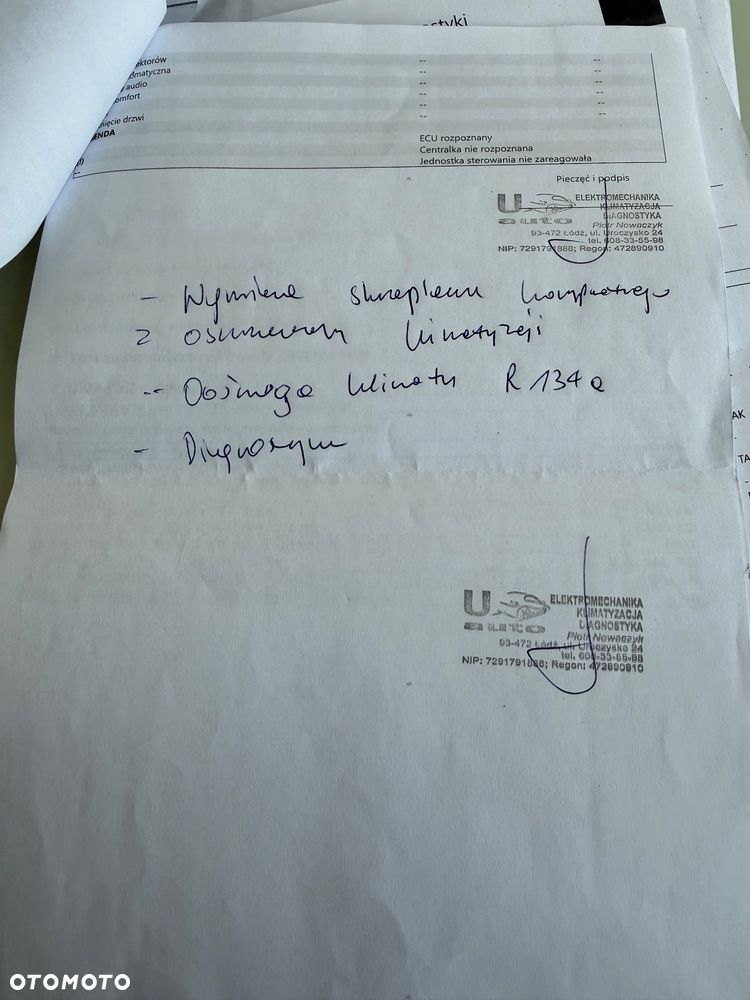 styki
ektorów -- --
omatyczna -- --
audio -- --
omfort -- --
-- --
nięcie drzwi
ENDA ECU rozpoznany
Centralka nie rozpoznana
Jednostka sterowania nie zareagowała
--
Pieczęć i podpis
U auto
ELEKTROMECHANIKA
KLIMATYZACJA
DIAGNOSTYKA
Piotr Nowaczyk
93-472 Łódź, ul. Uroczysko 24
tel. 608-33-55-98
NIP: 7291791888; Regon: 472890910
- Wymiana skraplacza kompletnego
z osuszaczem klimatyzacji
- Obsługa klimatu R 134a
- Diagnostyka
AK
TA
U auto
ELEKTROMECHANIKA
KLIMATYZACJA
DIAGNOSTYKA
Piotr Nowaczyk
93-472 Łódź, ul. Uroczysko 24
tel. 608-33-55-98
NIP: 7291791888; Regon: 472890910
OTOMOTO